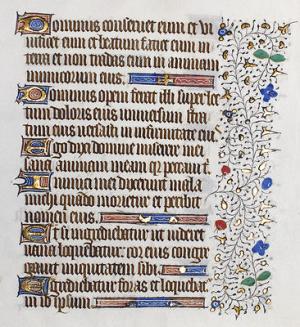 Dominus conservet eum et vi
vificet eum et beatum faciat eum in
terra et non tradat eum in animam
inimicorum eius.
Dominus opem ferat illi super lec
tum doloris eius universum stra
tum eius versasti in infirmitate eius
Ego dixi domine miserere mei
sana animam meam quia peccavi t
Inimici mei dixerunt mala
michi quando morietur et peribit
nomen eius.
Et si ingrediebatur ut videret
vana loquebatur: cor eius congre
gavit iniquitatem sibi.
Egrediebatur foras et loquebat
in id ipsum.